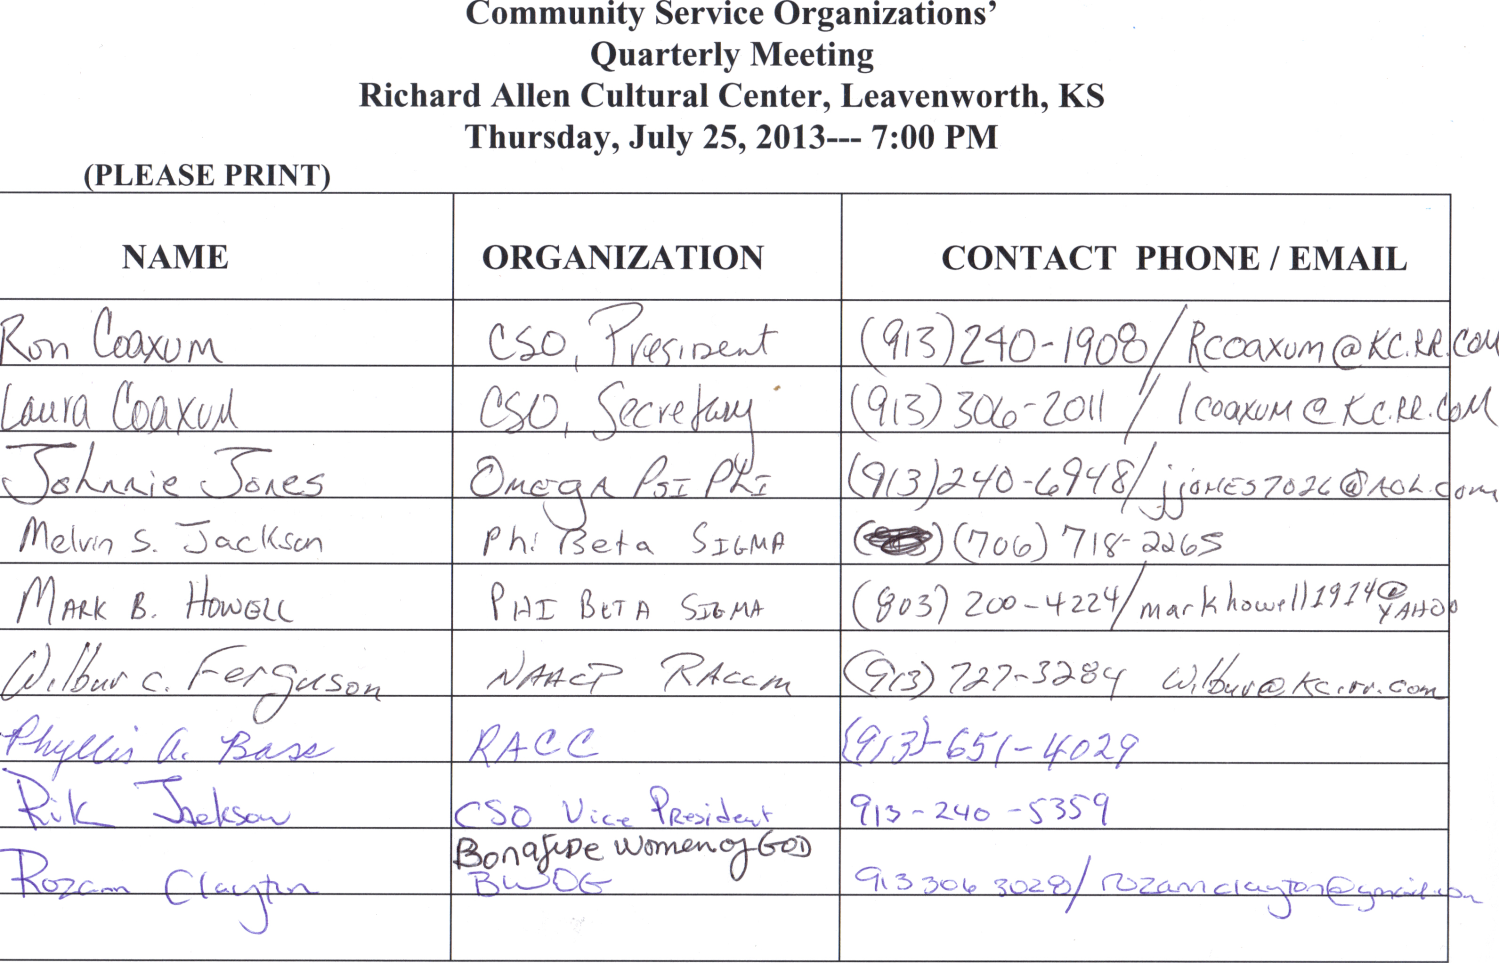 Community Service Organizations’
Quarterly Meeting
Richard Allen Cultural Center, Leavenworth, KS
Thursday, July 25, 2013--- 7:00 PM
(PLEASE PRINT)
NAME ORGANIZATION CONTACT PHONE / EMAIL
Ron Coaxum CSO, President (913)240-1908/RCOAXUM@KC.RR.COM
Laura Coaxum CSO, Secretary (913) 306-2011 / lcoaxum@KC.RR.COM
Johnnie Jones Omega Psi Phi (913)240-6948/jjones7026@AOL.com
Melvin S. Jackson Phi Beta SIGMA (706) 718-2265
MARK B. HOWELL PHI BETA SIGMA (803) 200-4224/markhowell1914@YAHOO
Wilbur C. Ferguson NAACP RACCM (913) 727-3284 Wilbur@kc.rr.com
Phyllis A. Bass RACC (913)-651-4029
Rik Jackson CSO Vice President 913-240-5359
Bonafide Women of GOD
Rozann Clayton BWOG 913 306 3028/rozannclayton@gmail.com